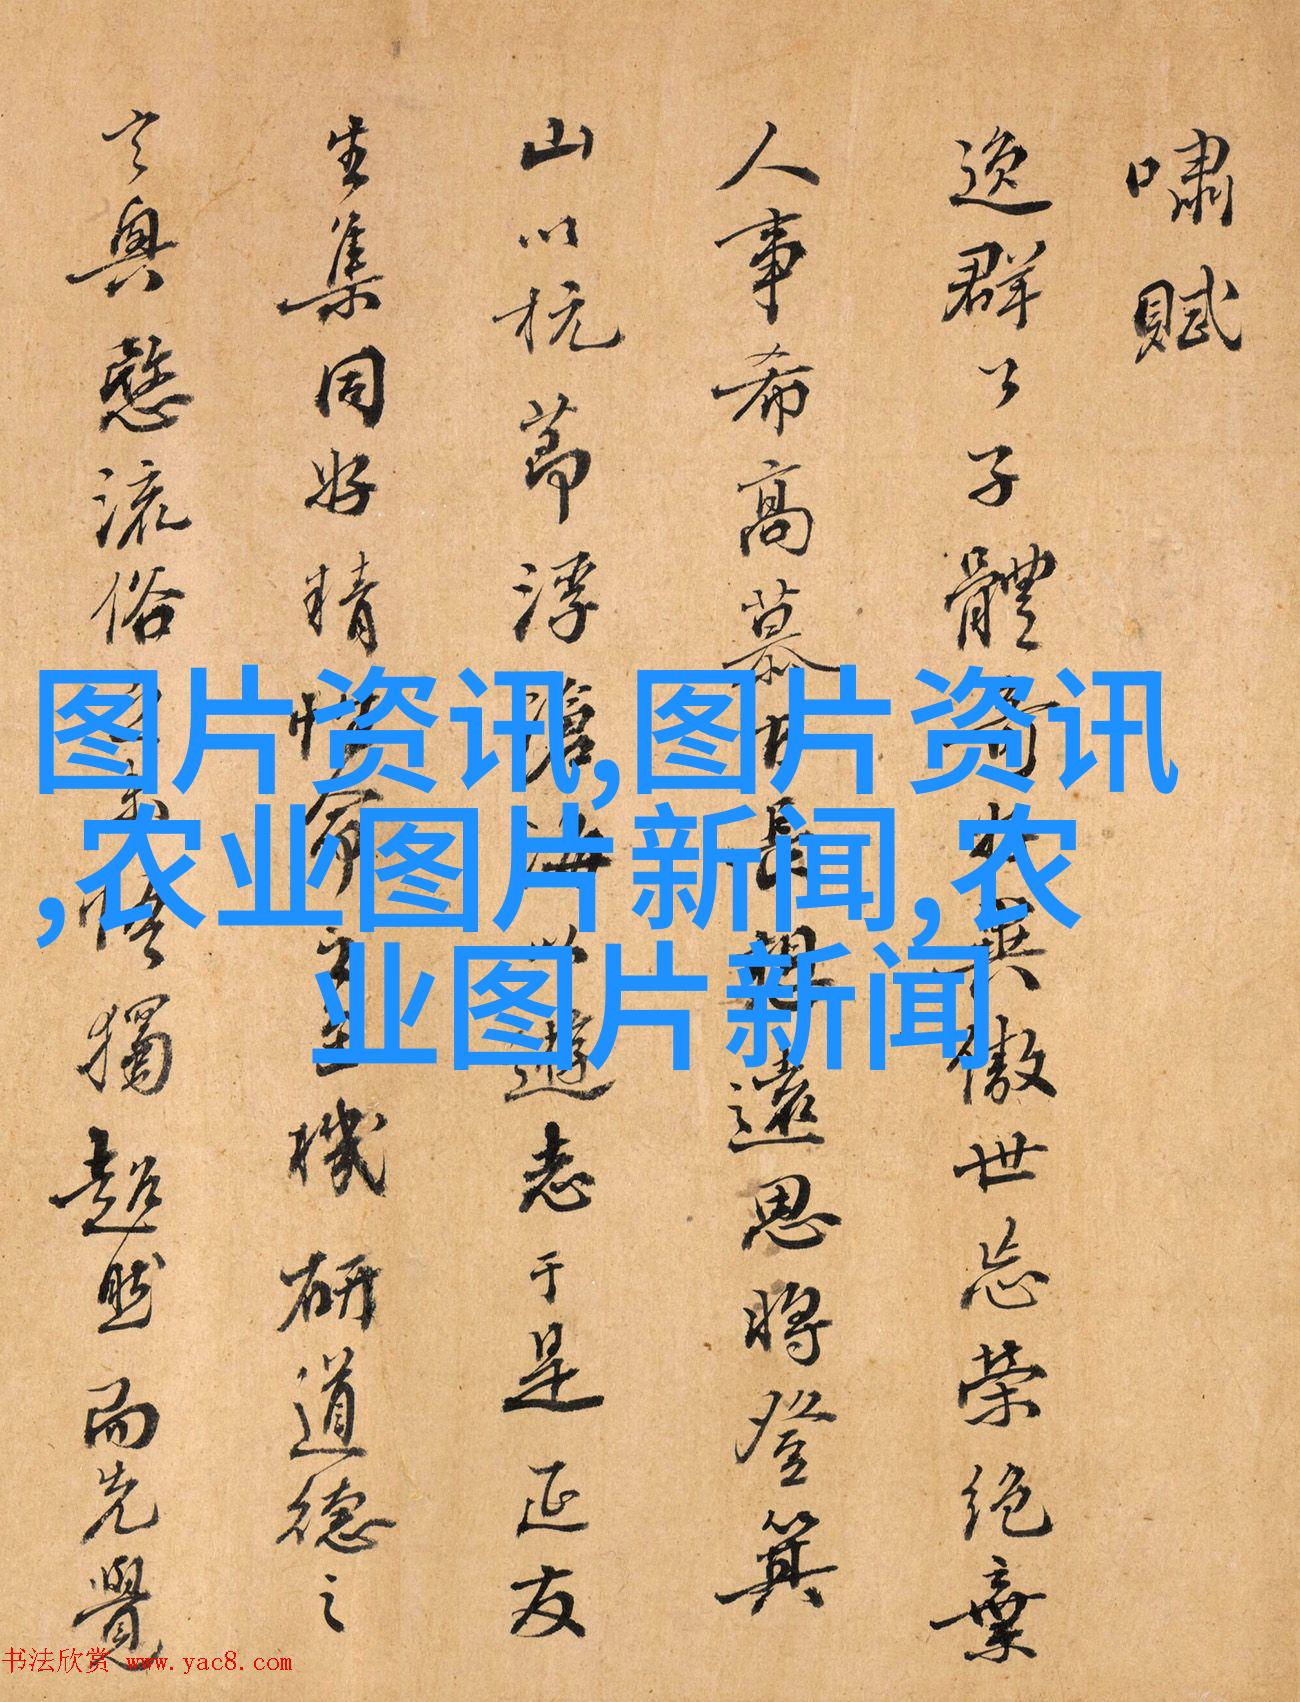 嘯賦
逸群公子體奇好異傲世忘榮絕棄
人事希高慕古長想遠思將登箕
山以抗節浮滄海以遊志于是延友
生集同好精性命之至機研道德之
玄奧愍流俗之未悟獨超然而先覺
图片资讯,图片资讯
,农业图片新闻,农
业图片新闻
书法欣赏 www.yac8.com